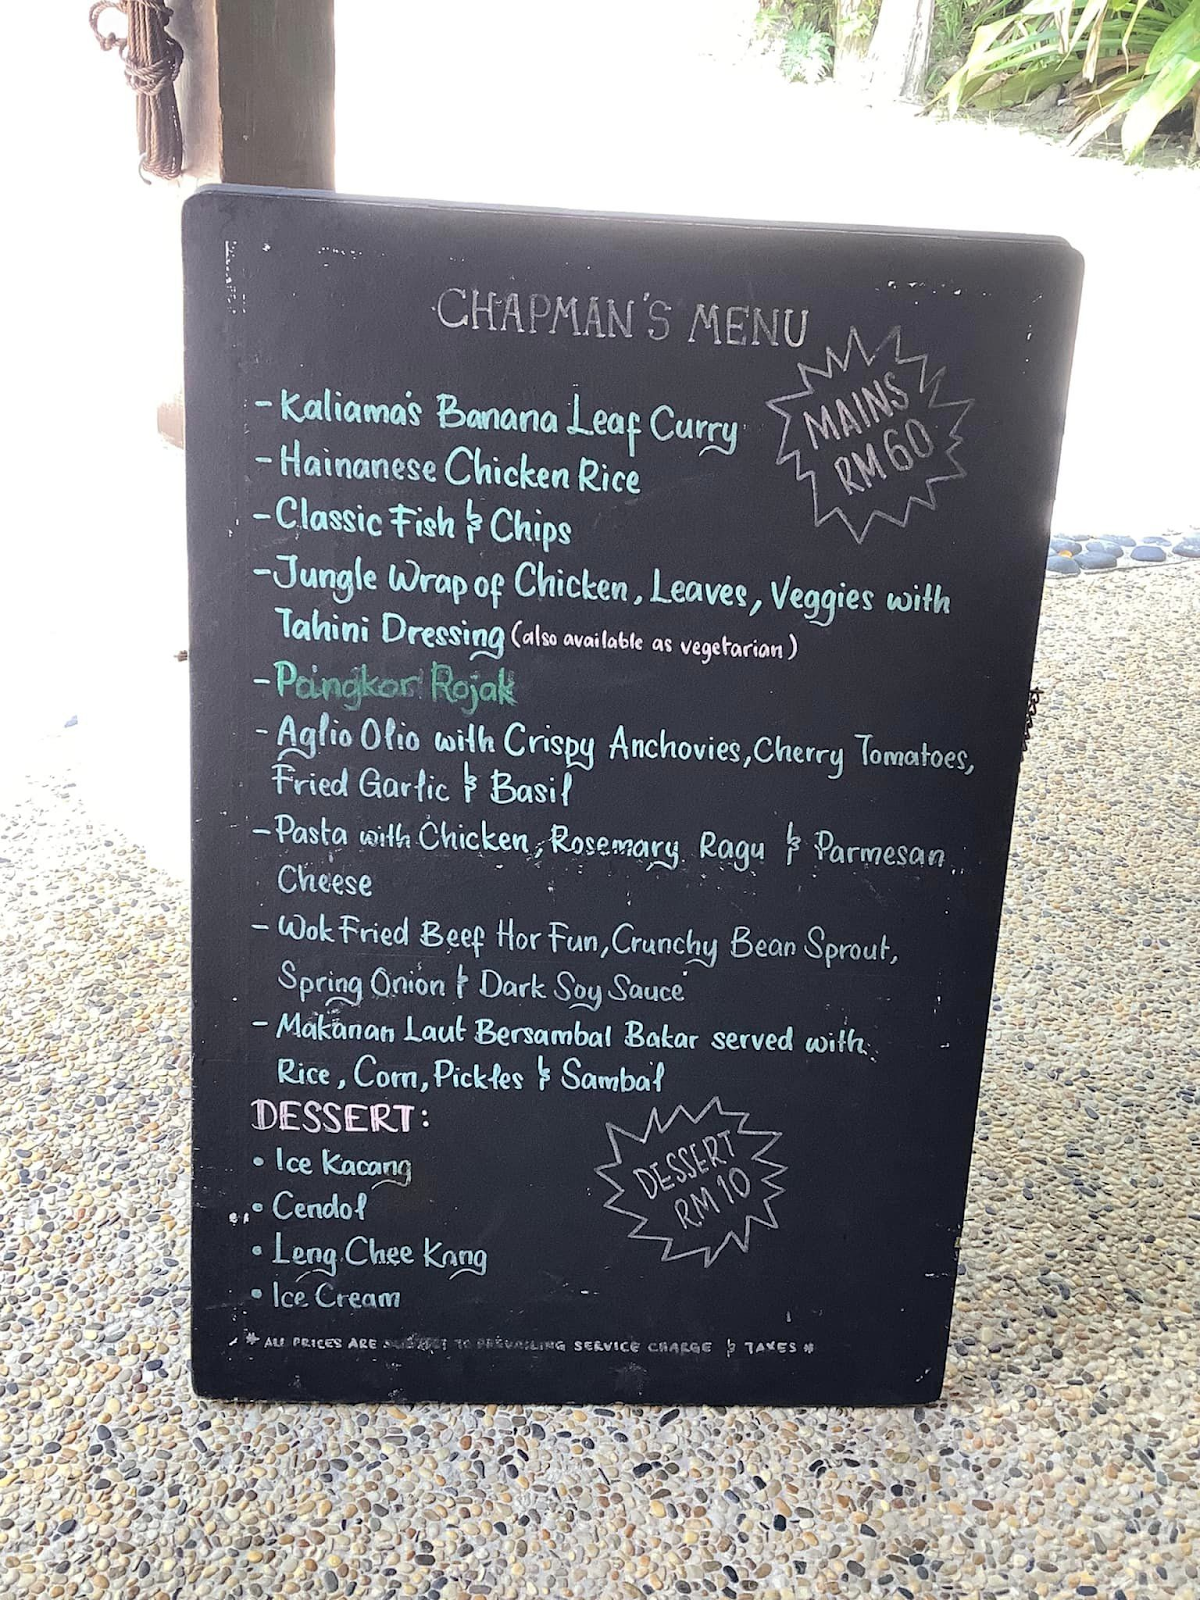 CHAPMAN'S MENU
MAINS
RM 60
- Kaliama's Banana Leaf Curry
- Hainanese Chicken Rice
- Classic Fish & Chips
- Jungle Wrap of Chicken, Leaves, Veggies with
Tahini Dressing (also available as vegetarian)
- Pangkor Rojak
- Aglio Olio with Crispy Anchovies, Cherry Tomatoes,
Fried Garlic & Basil
- Pasta with Chicken, Rosemary Ragu & Parmesan
Cheese
- Wok Fried Beef Hor Fun, Crunchy Bean Sprout,
Spring Onion & Dark Soy Sauce
- Makanan Laut Bersambal Bakar served with
Rice, Corn, Pickles & Sambal
DESSERT:
• Ice Kacang
• Cendol
• Leng Chee Kang
• Ice Cream
DESSERT
RM 10
* ALL PRICES ARE SUBJECT TO PREVAILING SERVICE CHARGE & TAXES *